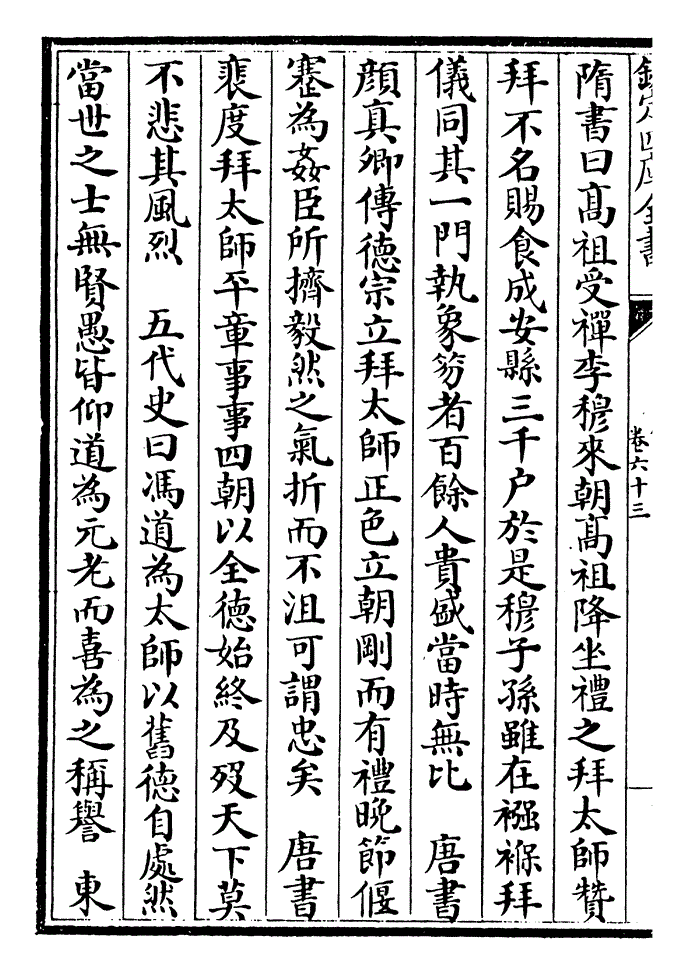 欽定四庫全書
卷六十三
隋書曰髙祖受禪李穆來朝髙祖降坐禮之拜太師贊
拜不名賜食成安縣三千户於是穆子孫雖在襁褓拜
儀同其一門執象笏者百餘人貴盛當時無比　唐書
顔真卿傳德宗立拜太師正色立朝剛而有禮晚節偃
蹇為姦臣所擠毅然之氣折而不沮可謂忠矣　唐書
裴度拜太師平章事事四朝以全德始終及歿天下莫
不悲其風烈　五代史曰馮道為太師以舊德自處然
當世之士無賢愚皆仰道為元老而喜為之稱譽　東